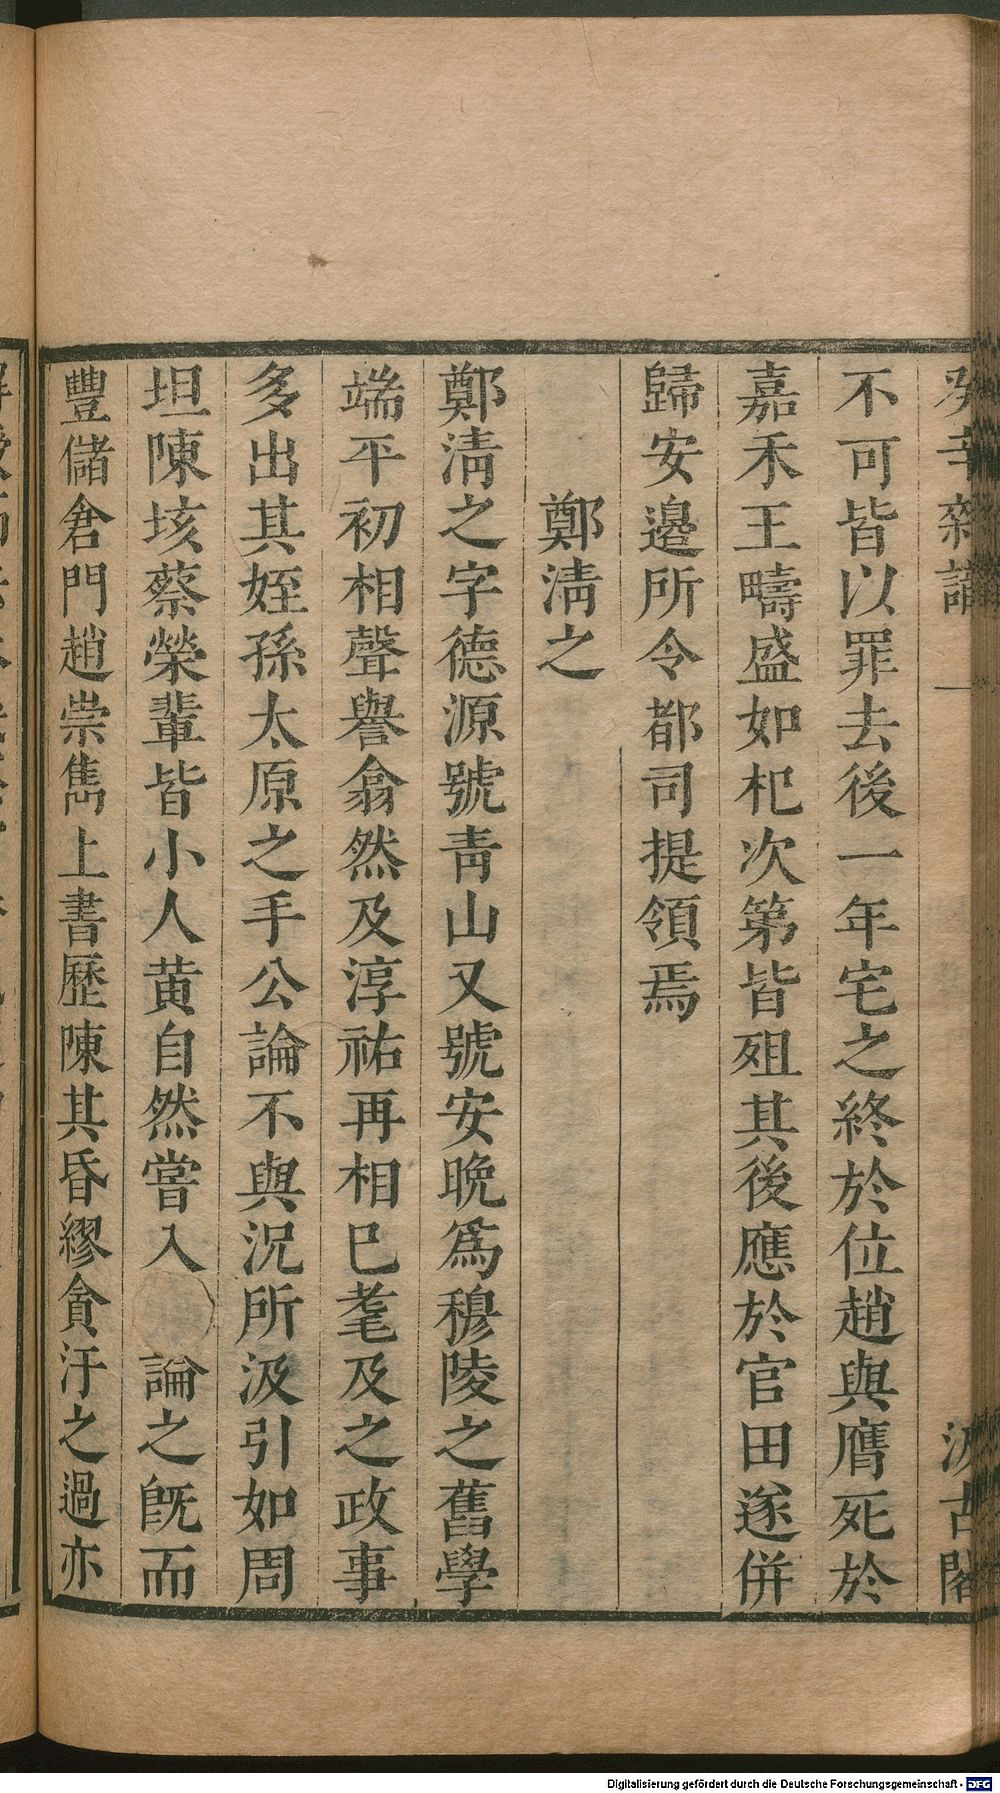 癸辛雜識 一 汲古閣
不可皆以罪去後一年宅之終於位趙與膺死於
嘉禾王疇盛如杞次第皆殂其後應於官田遂併
歸安邊所令都司提領焉
鄭淸之
鄭淸之字德源號靑山又號安晚爲穆陵之舊學
端平初相聲譽翕然及淳祐再相巳耄及之政事
多出其姪孫太原之手公論不與況所汲引如周
坦陳垓蔡榮輩皆小人黃自然嘗入 論之旣而
豐儲倉門趙崇雋上書歷陳其昏繆貪汙之過亦
Digitalisierung gefördert durch die Deutsche Forschungsgemeinschaft - DFG